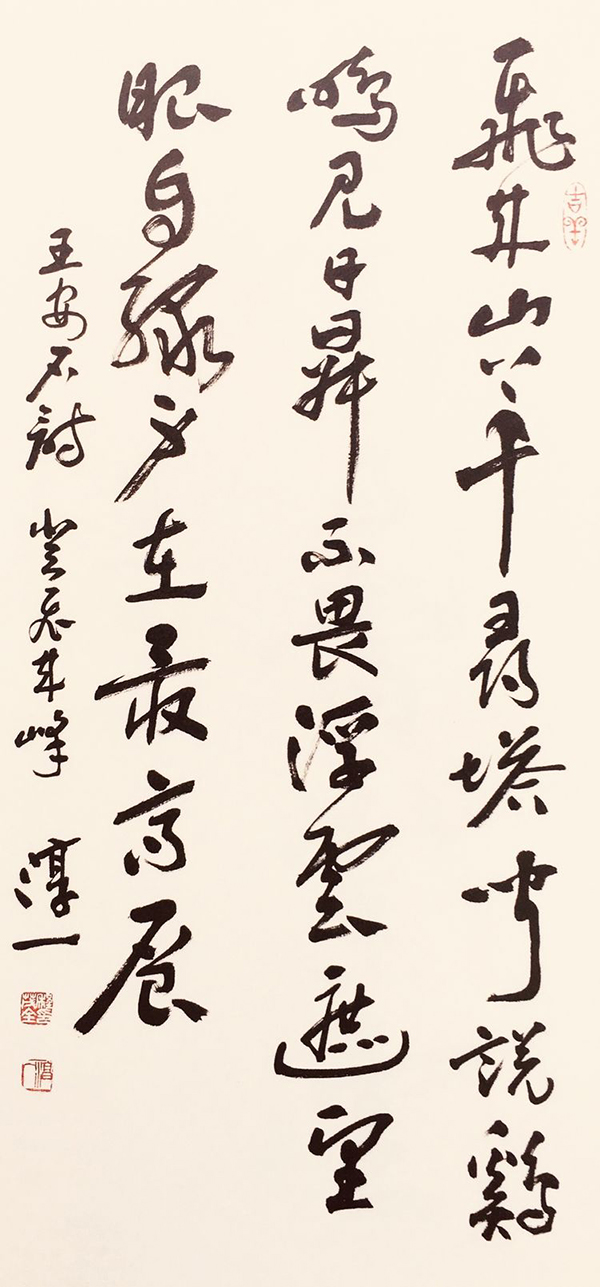 飛來山上千尋塔聞說鷄
鳴見日昇不畏浮雲遮望
眼自緣身在最高層
王安石詩 登飛來峰 淳一
吉羊